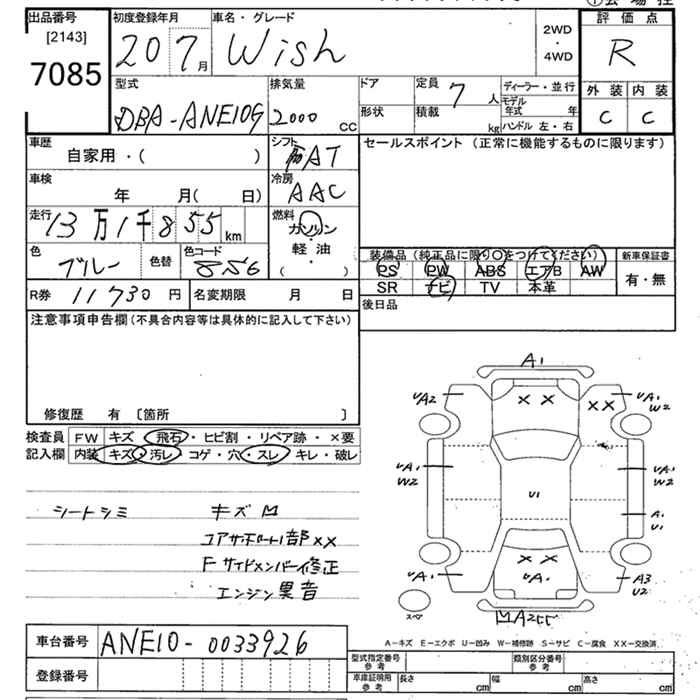 出品番号
[2143]
7085
初度登録年月
20 7月
車名・グレード
Wish
2WD
・
4WD
評価点
R
外装 内装
C C
型式
DBA-ANE10G
排気量
2000 CC
ドア
形状
定員 7 人
積載 kg
ディーラー・並行
モデル年式 年
ハンドル 左・右
車歴
自家用・( )
シフト
AT
セールスポイント (正常に機能するものに限ります)
車検
年 月( 日)
冷房
AAC
走行
13万1千855km
燃料
ガソリン
・
軽油
( )
色
ブルー
色替
色コード
8S6
装備品 (純正品に限り○をつけてください)
新車保証書
PS PW ABS エアB AW
有・無
SR ナビ TV 本革
R券 11730円
名変期限 月 日
後日品
注意事項申告欄 (不具合内容等は具体的に記入して下さい)
修復歴 有 [箇所 ]
検査員
記入欄
FW キズ・飛石・ヒビ割・リペア跡・×要
内装 キズ・汚レ・コゲ・穴・スレ・キレ・破レ
シートシミ
キズ凹
コアサポート部××
Fサイドメンバー修正
エンジン異音
A1
UA2
× ×
× ×
UA1
W2
UA1
W2
UA1
W2
U1
A1
U1
× ×
UA1
UA1
A3
U2
スペア
凹A2
A-キズ E-エクボ U-凹み W-補修跡 S-サビ C-腐食 XX-交換済
車台番号
ANE10-0033926
登録番号
型式指定番号
参考
類別区分番号
参考
車庫証明用
参考
長さ cm
幅 cm
高さ cm